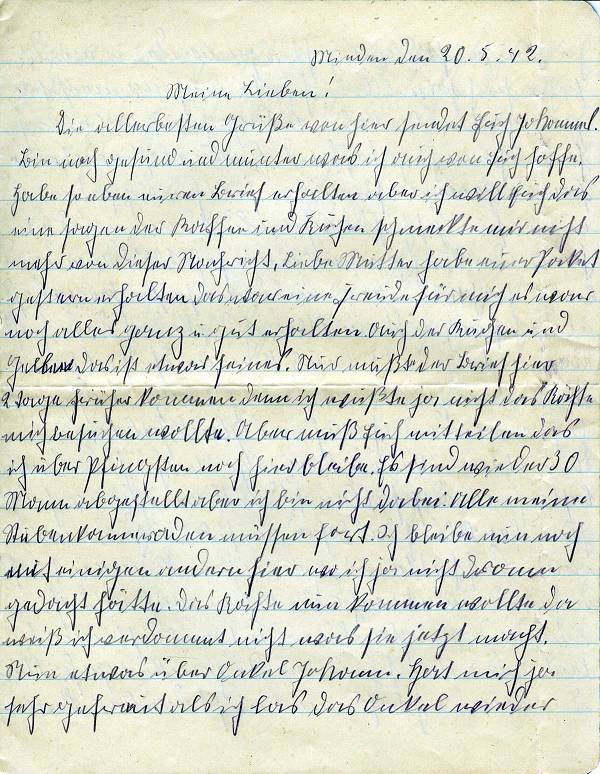 Minden den 20.5.42.
Meine Lieben!
Die allerbesten Grüße von hier sendet Euch Johannes.
Bin noch gesund und munter was ich auch von Euch hoffe.
Habe soeben euren Brief erhalten aber ich will Euch das
eine sagen der Kaffee und Kuchen schmeckte mir nicht
mehr von dieser Nachricht. Liebe Mutter habe euer Packet
gestern erhalten das war eine Freude für mich es war
noch alles ganz u gut erhalten. Auch der Kuchen und
das ist etwas feines. Nur mußte der Brief hier
2 Tage früher kommen denn ich wußte ja nicht das Käthe
mich besuchen wollte. Aber muß Euch mitteilen das
ich über Pfingsten noch hier bleibe. Es sind wieder 30
Mann abgestellt aber ich bin nicht dabei. Alle meine
Stubenkameraden müssen fort. Ich bleibe nun noch
mit einigen andern hier wo ich ja nicht daran
gedacht hätte. Das Käthe nun kommen wollte da
weiß ich verdammt nicht was sie jetzt macht.
Nun etwas über Onkel Johann. Hat mich ja
sehr gefreut als ich las das Onkel wieder